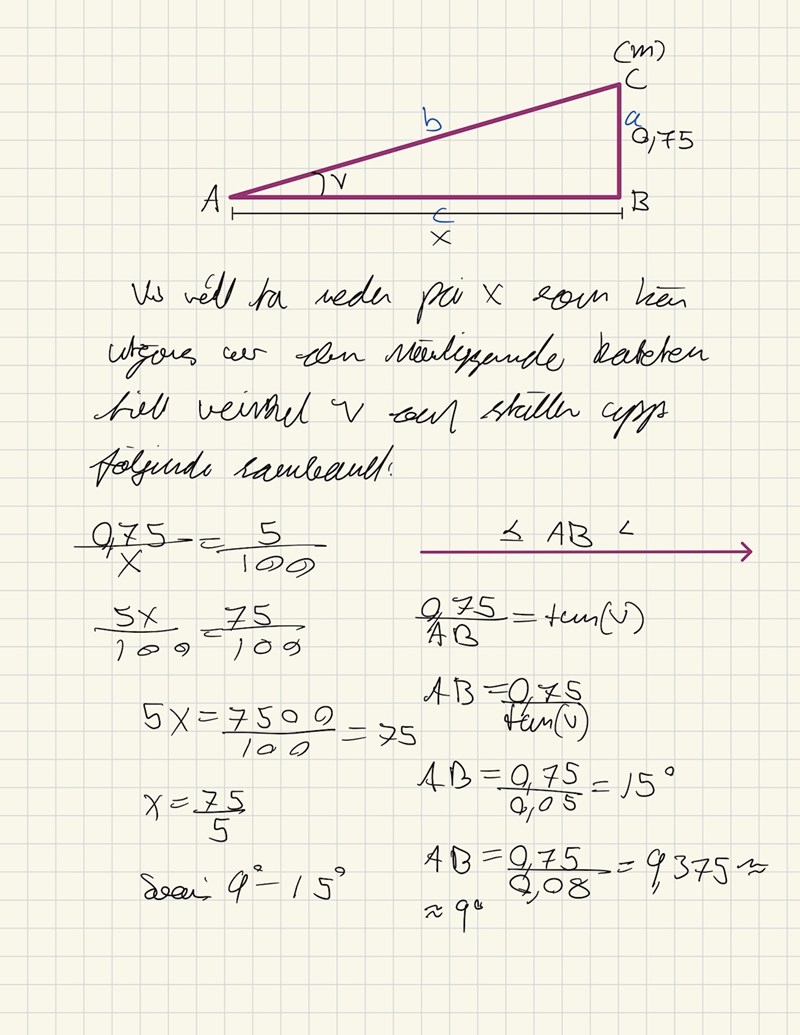 (m)
C
b
a
0,75
A
v
B
c
x
Vi vill ta reda på x som kan
utgörs av den närliggande kateten
till vinkel v och ställer upp
följande samband:
0,75/x = 5/100
5x/100 = 75/100
5x = 7500/100 = 75
x = 75/5
Svar: 9° - 15°
≤ AB <
0,75/AB = tan(v)
AB = 0,75/tan(v)
AB = 0,75/0,05 = 15°
AB = 0,75/0,08 = 9,375 ≈
≈ 9°